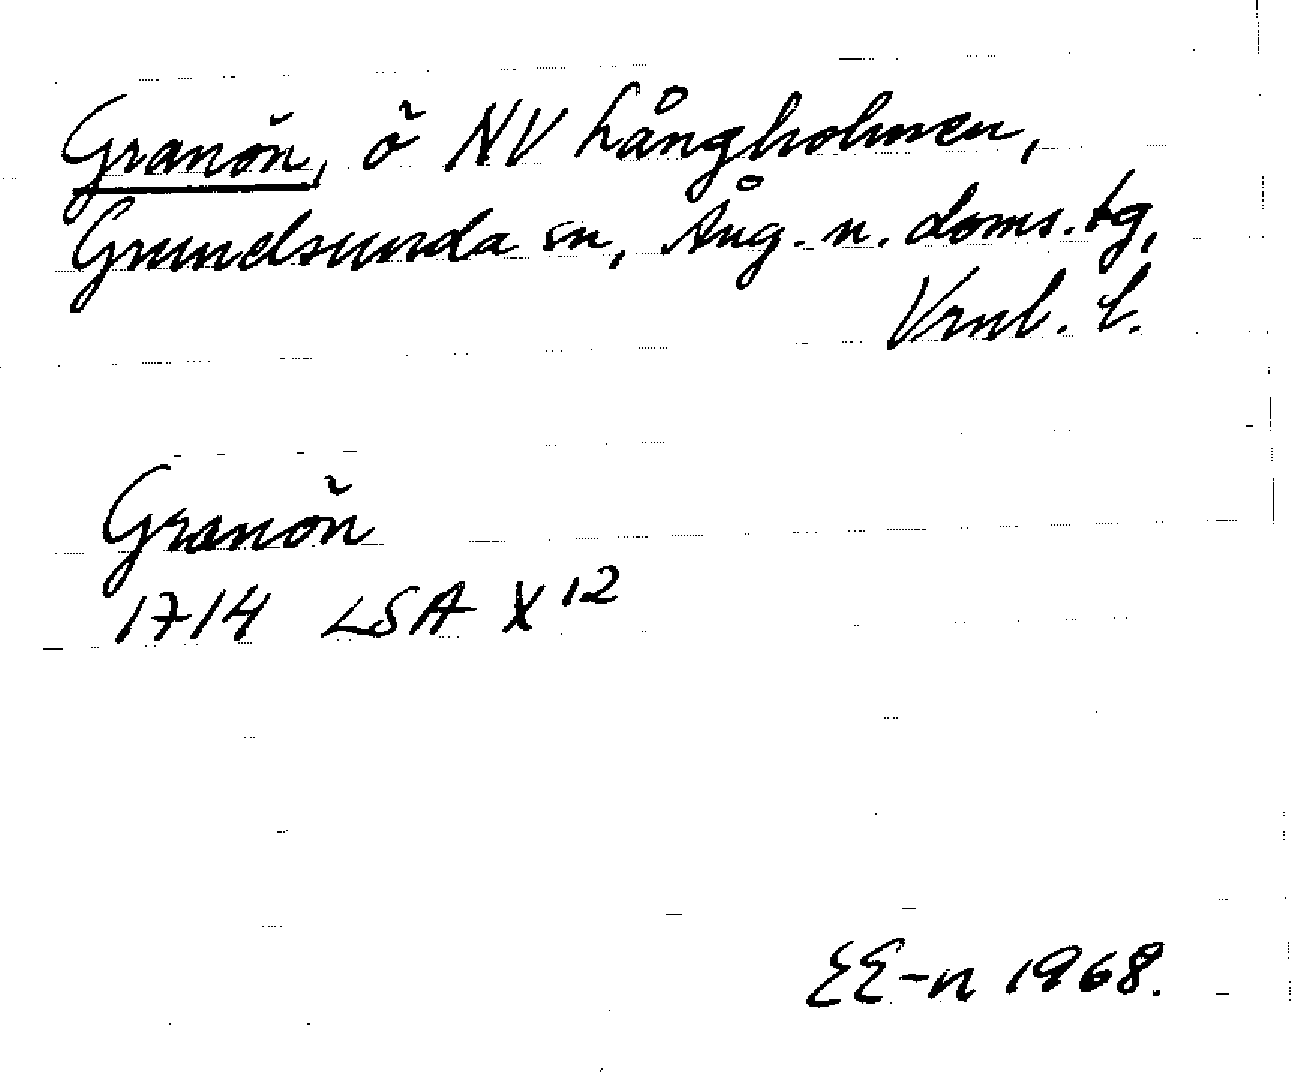 Granön, ö NV Långholmen,
Grundsunda sn, Ång. n. doms. tg,
Vrnl. l.
Granön
1714 LSA X 12
EE-n 1968.